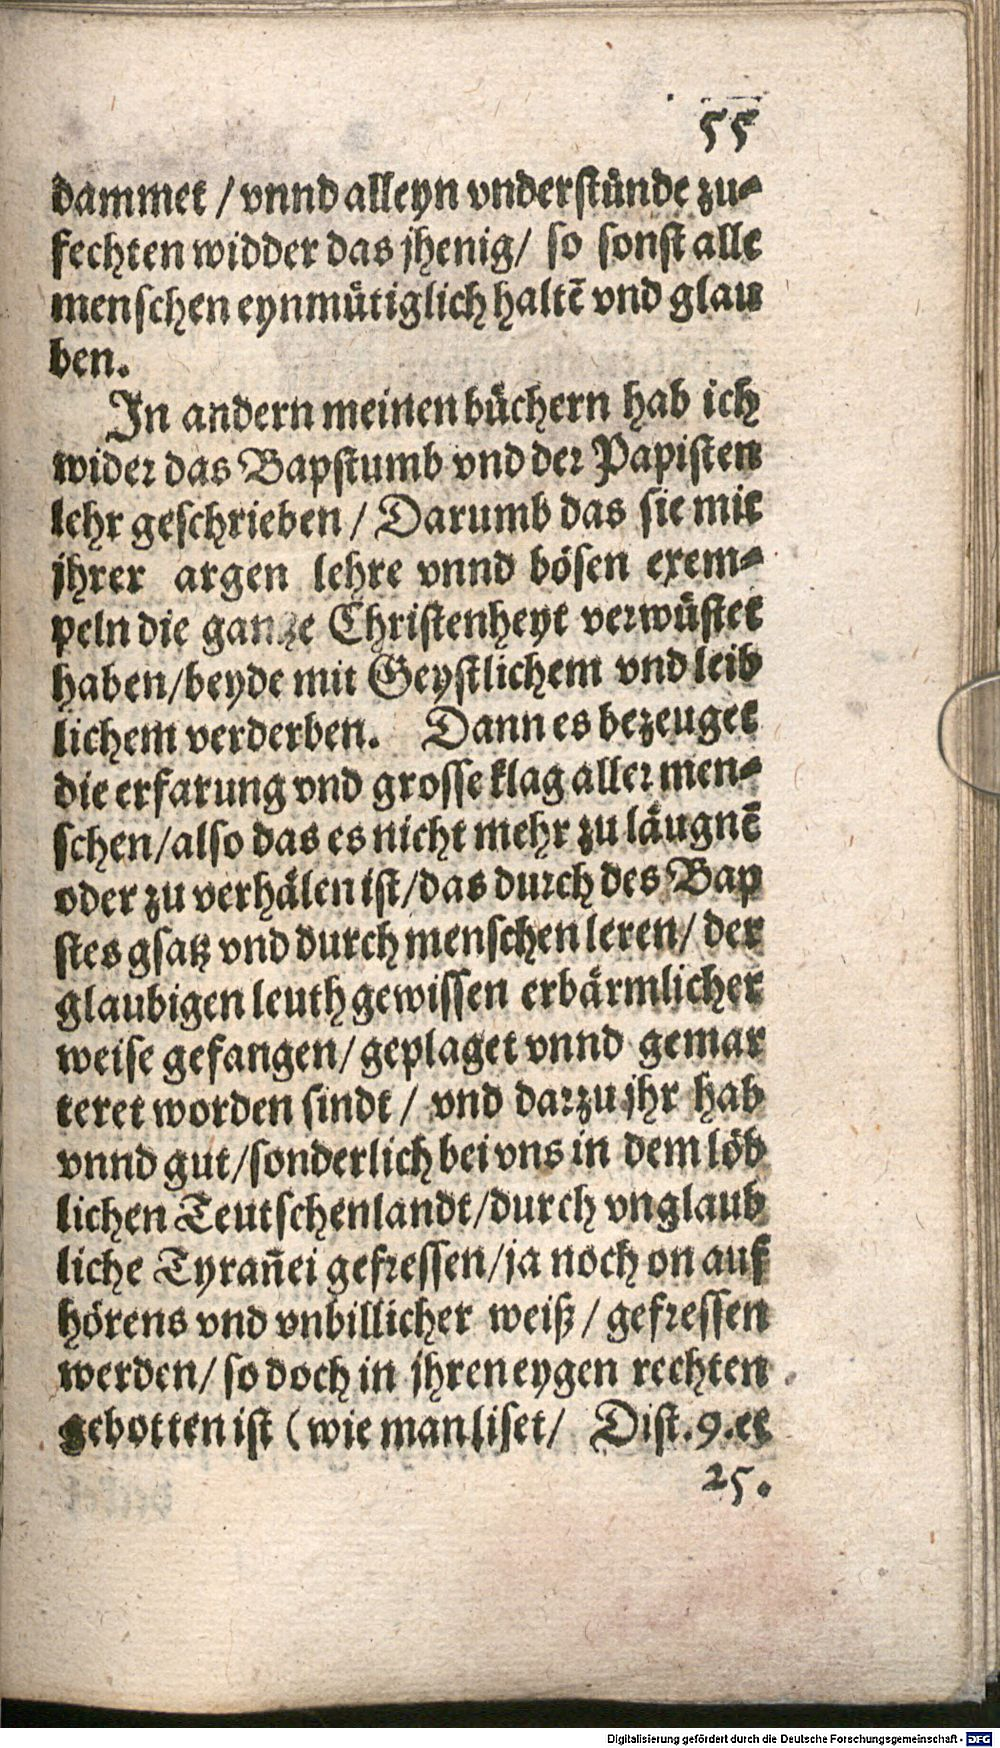 55
dammet / vnnd alleyn vnderstünde zu-
fechten widder das jhenig / so sonst alle
menschen eynmütiglich haltē vnd glau
ben.
In andern meinen büchern hab ich
wider das Bapstumb vnd der Papisten
lehr geschrieben / Darumb das sie mit
jhrer argen lehre vnnd bösen exem-
peln die gantze Christenheyt verwüstet
haben / beyde mit Geystlichem vnd leib
lichem verderben. Dann es bezeuget
die erfarung vnd grosse klag aller men-
schen / also das es nicht mehr zu läugnē
oder zu verhälen ist / das durch des Bap
stes gsatz vnd durch menschen leren / der
glaubigen leuth gewissen erbärmlicher
weise gefangen / geplaget vnnd gemar
teret worden sindt / vnd darzu jhr hab
vnnd gut / sonderlich bei vns in dem löb
lichen Teutschenlandt / durch vnglaub
liche Tyrañei gefressen / ja noch on auf
hörens vnd vnbillicher weiß / gefressen
werden / so doch in jhren eygen rechten
gebotten ist (wie man liset / Dist. 9. et
25.
Digitalisierung gefördert durch die Deutsche Forschungsgemeinschaft - DFG